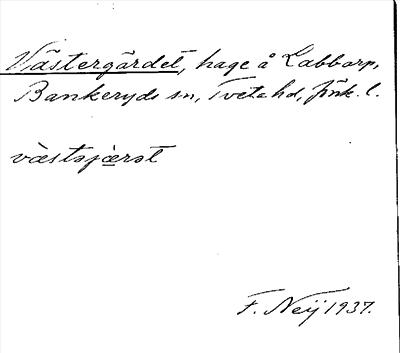 Västergärdet, hage å Labbarp,
Bankeryds sn, Tveta hd, Jönk. l.
væstəjæ̀rət
F. Neij 1937.